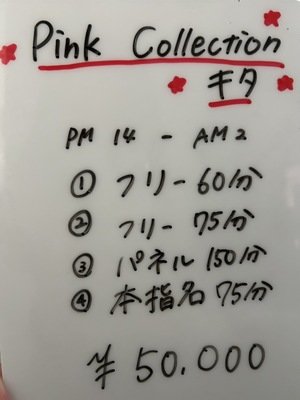 Pink Collection
キタ
PM 14 - AM 2
① フリー 60分
② フリー 75分
③ パネル 150分
④ 本指名 75分
¥ 50.000